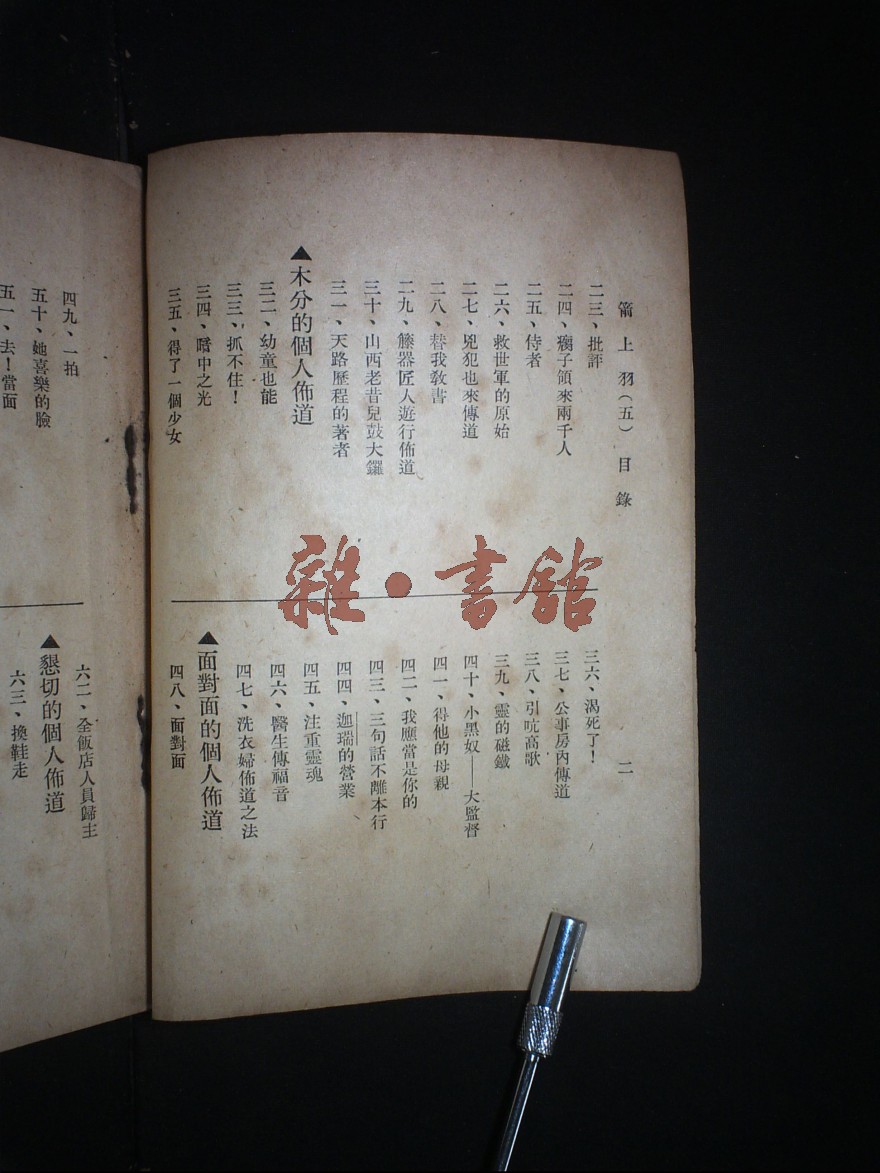 箭上羽（五）　目錄　二
二三、批評
二四、瘸子領來兩千人
二五、侍者
二六、救世軍的原始
二七、兇犯也來傳道
二八、替我敎書
二九、籐器匠人遊行佈道
三十、山西老昔兒鼓大鑼
三一、天路歷程的著者
▲木分的個人佈道
三二、幼童也能
三三、抓不住！
三四、暗中之光
三五、得了一個少女
三六、渴死了！
三七、公事房內傳道
三八、引吭高歌
三九、靈的磁鐵
四十、小黑奴——大監督
四一、得他的母親
四二、我應當是你的
四三、三句話不離本行
四四、迦瑞的營業
四五、注重靈魂
四六、醫生傳福音
四七、洗衣婦佈道之法
▲面對面的個人佈道
四八、面對面
四九、一拍
五十、她喜樂的臉
五一、去！當面
六二、全飯店人員歸主
▲懇切的個人佈道
六三、換鞋走
雜·書館